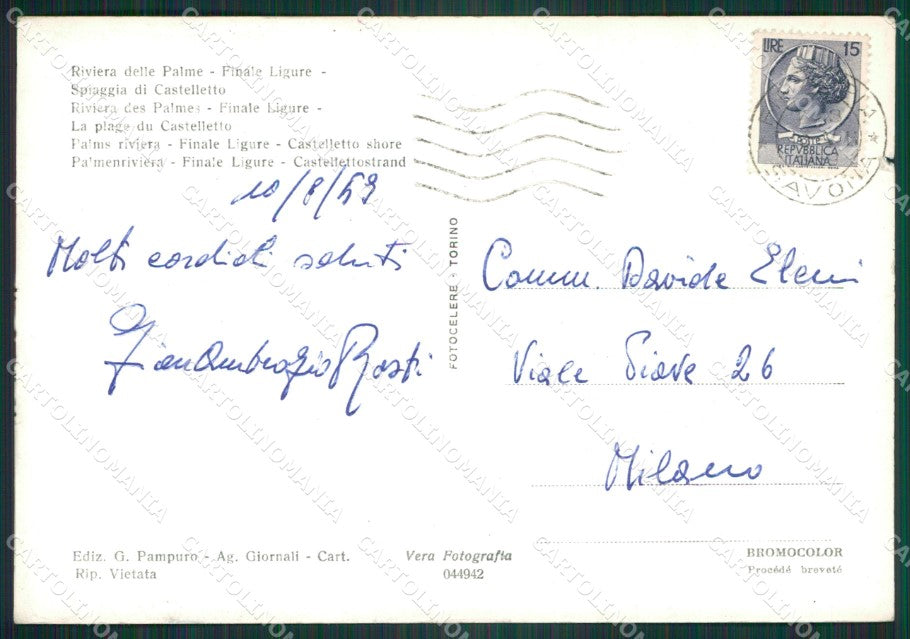 Riviera delle Palme - Finale Ligure -
Spiaggia di Castelletto
Riviera des Palmes - Finale Ligure -
La plage du Castelletto
Palms riviera - Finale Ligure - Castelletto shore
Palmenriviera - Finale Ligure - Castellettostrand
10/8/59
Molti cordiali saluti
GianAmbrogio Rosti
FOTOCELERE - TORINO
LIRE 15
POSTE
REPVBBLICA
ITALIANA
SAVONA
Comm. Davide Eleni
Viale Piave 26
Milano
Ediz. G. Pampuro - Ag. Giornali - Cart.
Rip. Vietata
Vera Fotografia
044942
BROMOCOLOR
Procédé breveté
CARTOLINOMANIA